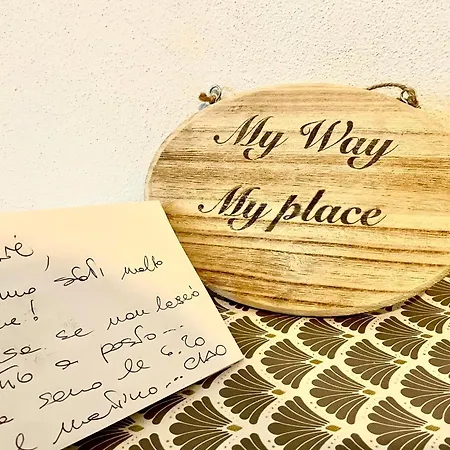 My Way
My place
mo stati molto
e!
sa se non lascio
to a posto...
sono le 6.20
l mattino... ciao